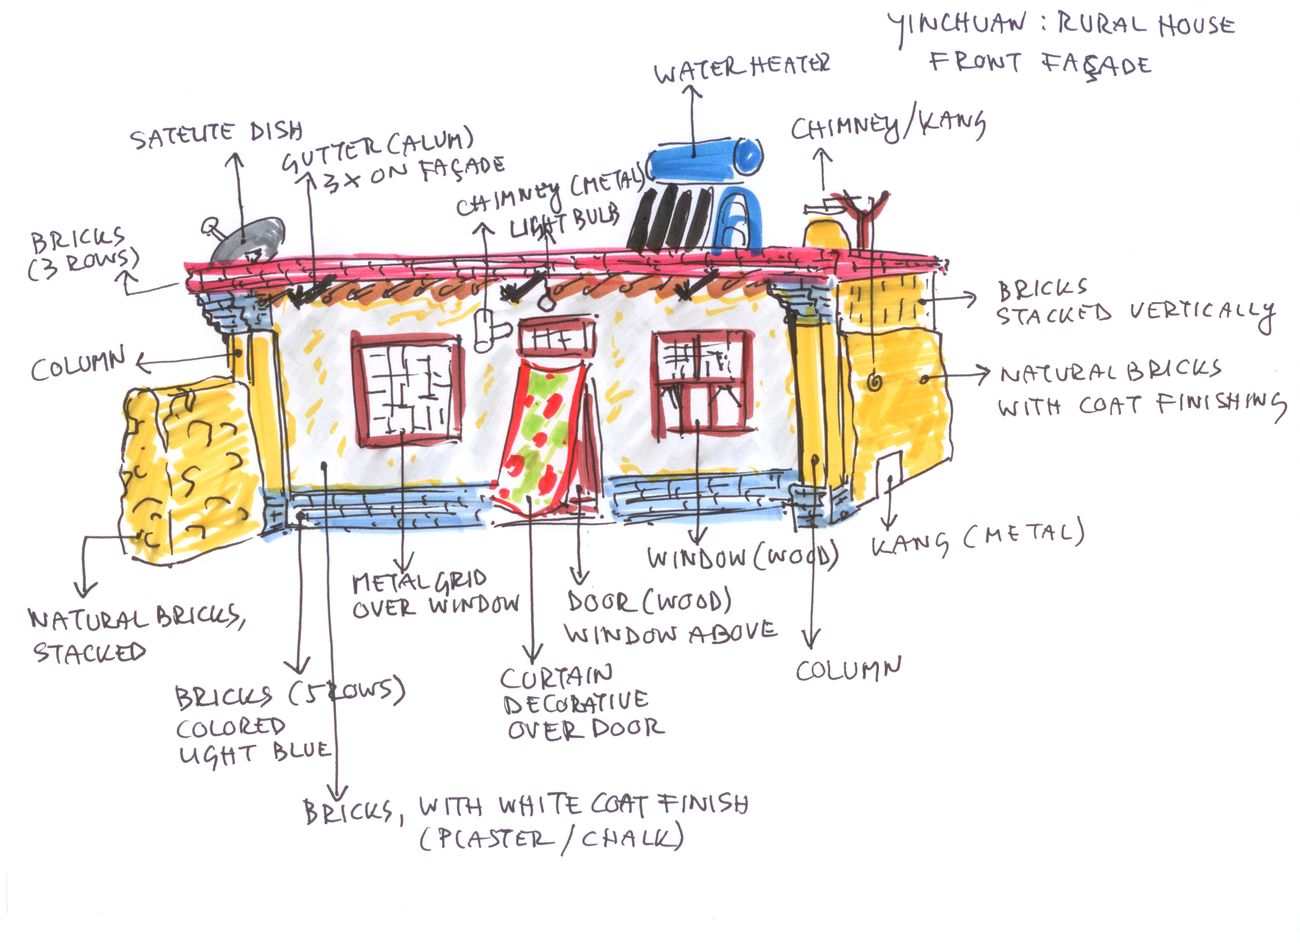 YINCHUAN : RURAL HOUSE
FRONT FAÇADE
WATER HEATER
CHIMNEY/KANG
SATELITE DISH
GUTTER (ALUM)
3X ON FAÇADE
CHIMNEY (METAL)
LIGHT BULB
BRICKS
(3 ROWS)
COLUMN
BRICKS
STACKED VERTICALLY
NATURAL BRICKS
WITH COAT FINISHING
KANG (METAL)
WINDOW (WOOD)
METAL GRID
OVER WINDOW
DOOR (WOOD)
WINDOW ABOVE
NATURAL BRICKS,
STACKED
COLUMN
CURTAIN
DECORATIVE
OVER DOOR
BRICKS (5 ROWS)
COLORED
LIGHT BLUE
BRICKS, WITH WHITE COAT FINISH
(PLASTER / CHALK)